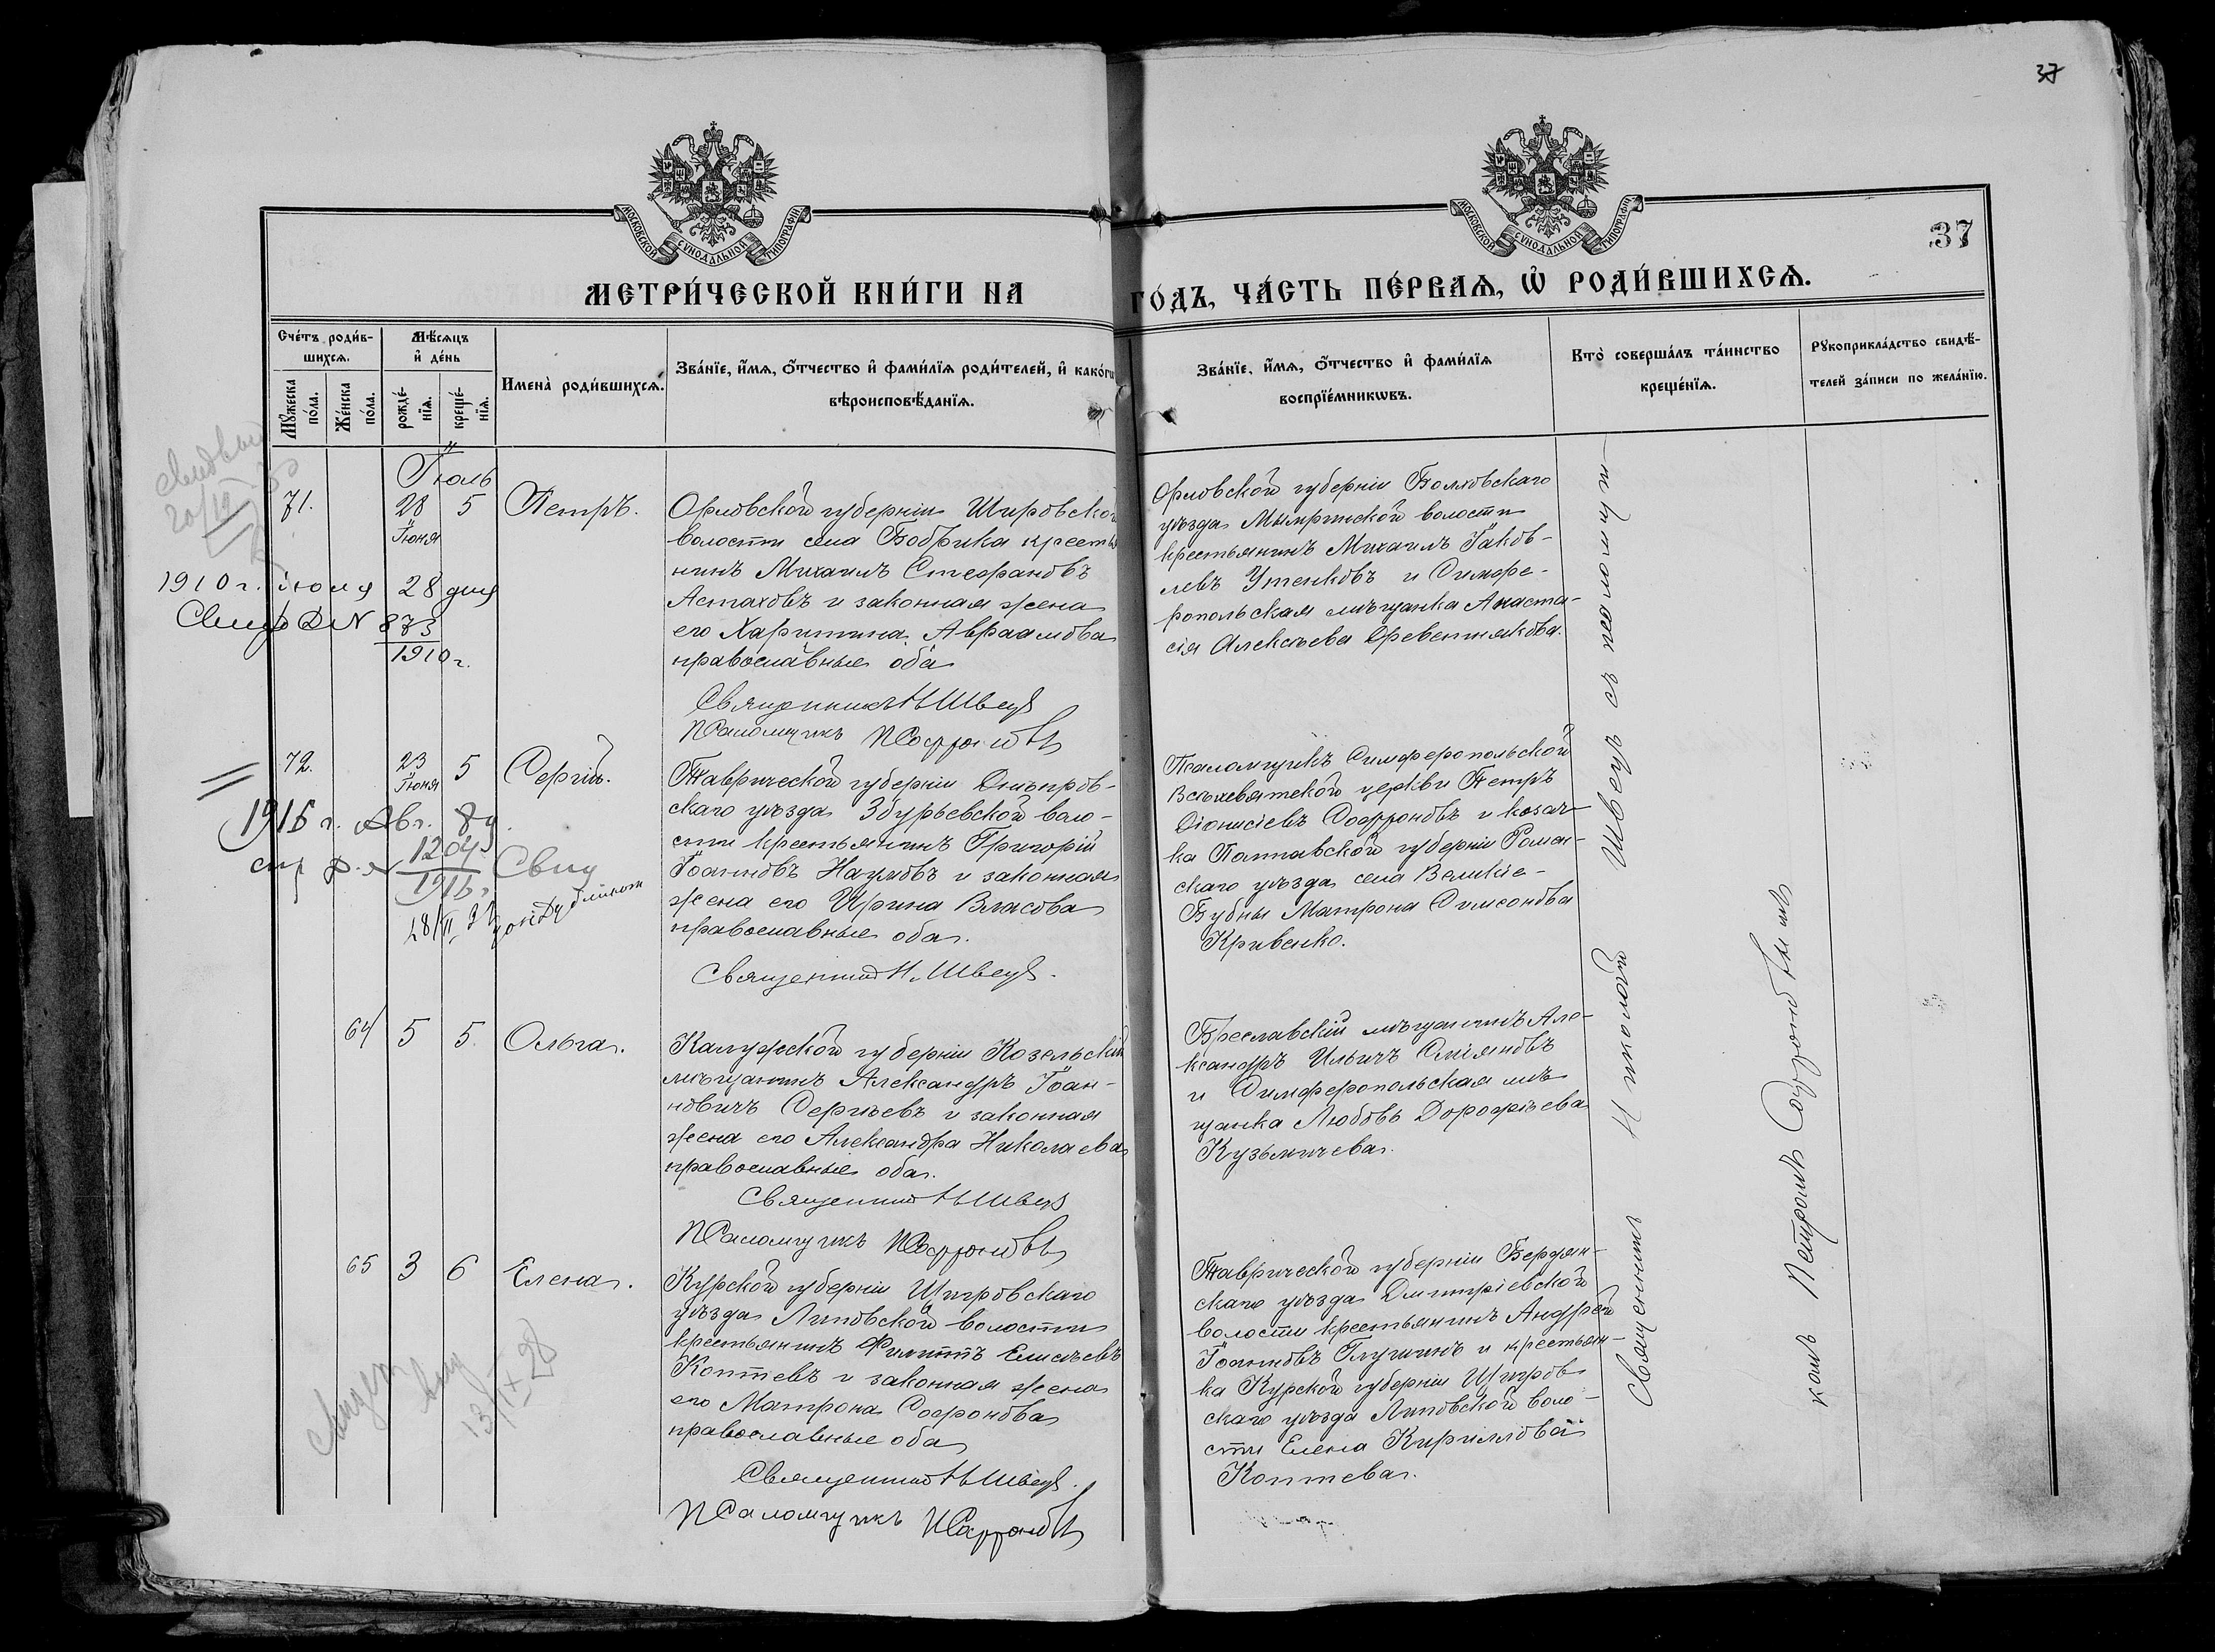 37
МОСКОВСКОЙ СѴНОДАЛЬНОЙ ТИПОГРАФІИ
МОСКОВСКОЙ СѴНОДАЛЬНОЙ ТИПОГРАФІИ
37
МЕТРИ́ЧЕСКОЙ КНИ́ГИ НА
ГО́ДЪ, ЧА́СТЬ ПЕ́РВАѦ, Ѽ РОДИ́ВШИХСѦ.
Сче́тъ роди́в-
шихсѧ.
Мѣ́сѧцъ
и҆ де́нь
Мꙋ́жеска по́ла.
Же́нска по́ла.
рожде́-
нїѧ.
креще́-
нїѧ.
Имена̀ роди́вшихсѧ.
Зва́нїе, и҆́мѧ, ѻ҆́тчество и҆ фами́лїѧ роди́телей, и҆ како́гѡ
вѣроисповѣ́данїѧ.
Зва́нїе, и҆́мѧ, ѻ҆́тчество и҆ фами́лїѧ
воспрїе́мникѡвъ.
Кто̀ соверша́лъ та́инство
креще́нїѧ.
Рꙋкоприкла́дство свидѣ́-
телей за́писи по жела́нїю.
Іюль
71.
28
Іюня
5
Петръ.
Орловской губерніи Щигровской
волости села Бобрика крестья
нинъ Михаилъ Стефановъ
Астаховъ и законная жена
его Харитина Авраамова
православные оба
Священникъ Н Швецъ
Псаломщикъ П Софроновъ
Орловской губерніи Болховскаго
уѣзда Мымринской волости
крестьянинъ Михаилъ Іаков-
левъ Утенковъ и Симфе-
ропольская мѣщанка Анаста-
сія Алексѣева
1910 г. іюля 28 дня
873
1910 г.
72.
23
Іюня
5
Сергій.
Таврической губерніи Днѣпров-
скаго уѣзда Збурьевской воло-
сти крестьянинъ Григорій
Іоанновъ Наумовъ и законная
жена его Ирина Власова
православные оба.
Священникъ Н. Швецъ.
Псаломщикъ Симферопольской
Всѣхсвятской церкви Петръ
Діонисіевъ Софроновъ и козач-
ка Полтавской губерніи Ромен-
скаго уѣзда села Великіе-
Бубны Матрона Симеонова
Кривенко.
1915 г. Авг. 8 д.
1204
1915 г.
Свид
64
5
5.
Ольга.
Калужской губерніи Козельскій
мѣщанинъ Александръ Іоан-
новичъ Сергѣевъ и законная
жена его Александра Николаева
православные оба.
Священникъ Н Швецъ
Псаломщикъ П Софроновъ
Бреславскій мѣщанинъ Але-
ксандръ Ильичъ Сміяновъ
и Симферопольская мѣ
щанка Любовь Дорофѣева
Кузьмичева.
65
3
6
Елена.
Курской губерніи Щигровскаго
уѣзда Липовской волости
крестьянинъ Филиппъ Елисѣевъ
Коптевъ и законная жена
его Матрона Софронова
православные оба
Священникъ Н Швецъ.
Псаломщикъ П Софроновъ
Таврической губерніи Бердян-
скаго уѣзда Дмитріевской
волости крестьянинъ Андрей
Іоанновъ Глушинъ и крестьян-
ка Курской губерніи Щигров
скаго уѣзда Липовской воло-
сти Елена Кириллова
Коптева.
13/IX 28
Священникъ Николай Швецъ съ псаломщи
комъ Петромъ Софроновымъ